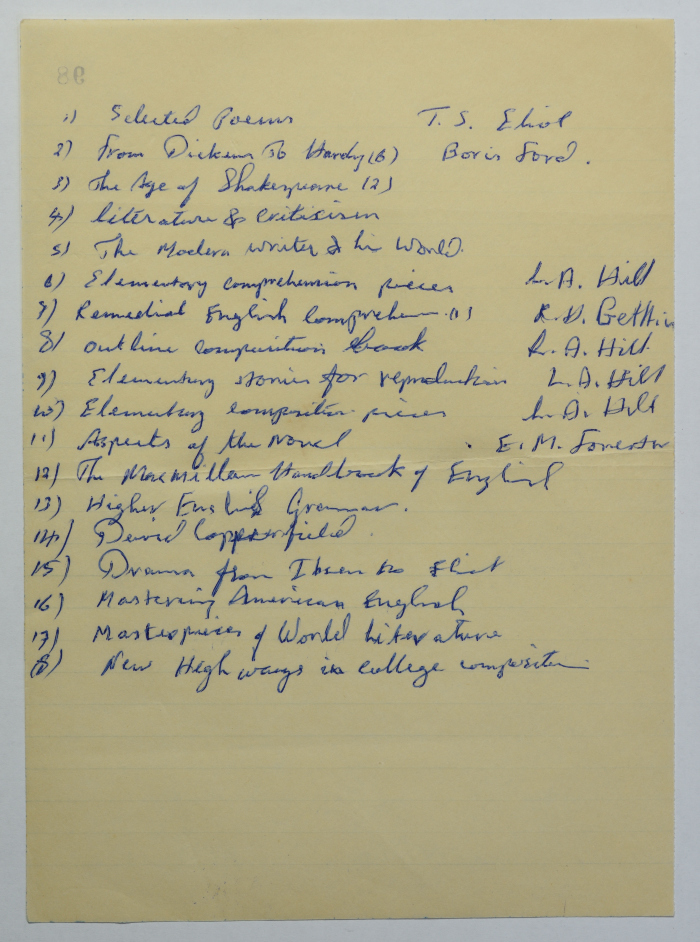 98
1) Selected Poems T. S. Eliot
2) From Dickens to Hardy (6) Boris Ford.
3) The Age of Shakespeare (2)
4) literature & criticism
5) The Modern writer & his World.
6) Elementary comprehension pieces L. A. Hill
7) Remedial English Comprehen. (1) R. D. Gethin
8) outline composition book L. A. Hill.
9) Elementary stories for reproduction L. A. Hill
10) Elementary composition pieces L. A. Hill
11) Aspects of the Novel . E. M. Forester
12) The MacMillan Handbook of English
13) Higher English Grammar.
14) David Copperfield.
15) Drama from Ibsen to Eliot
16) Mastering American English
17) Masterpieces of World Literature
18) New Highways in college composition